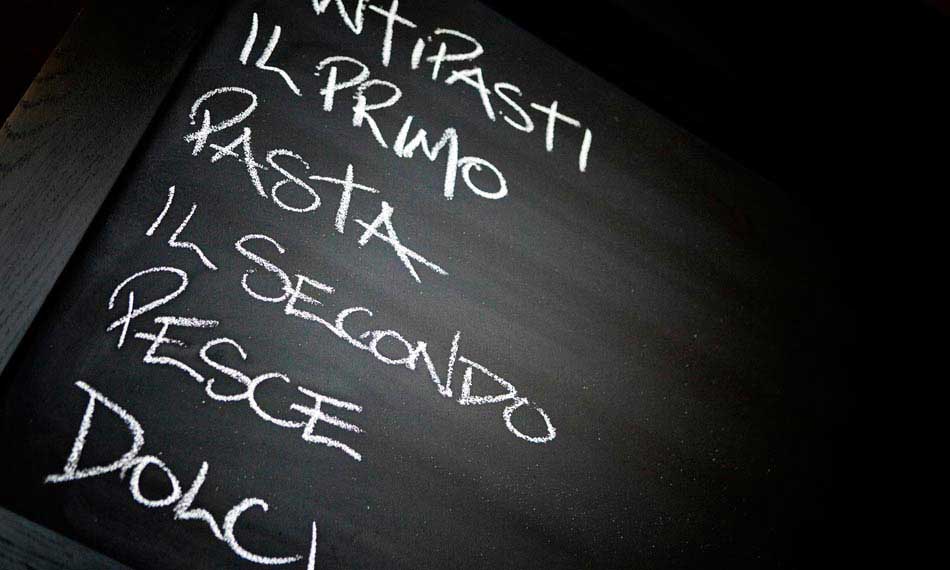 ANTIPASTI
IL PRIMO
PASTA
IL SECONDO
PESCE
DOLCI